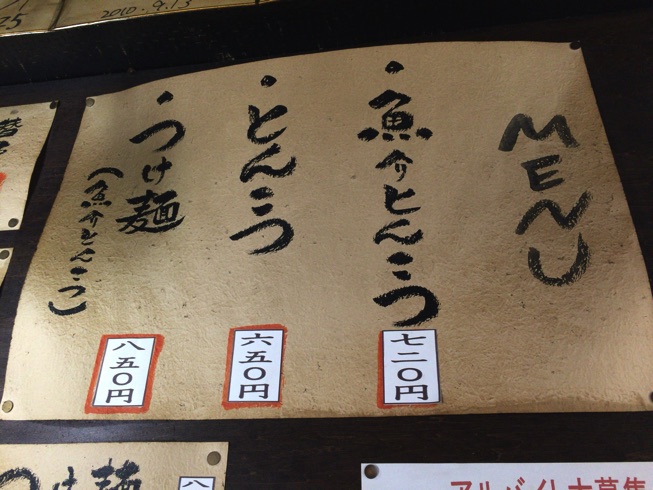 2010.9.13
25
MENU
・魚介とんこつ
七二〇円
・とんこつ
六五〇円
・つけ麺
(魚介とんこつ)
八五〇円
つけ麺
八
アルバイト大募集